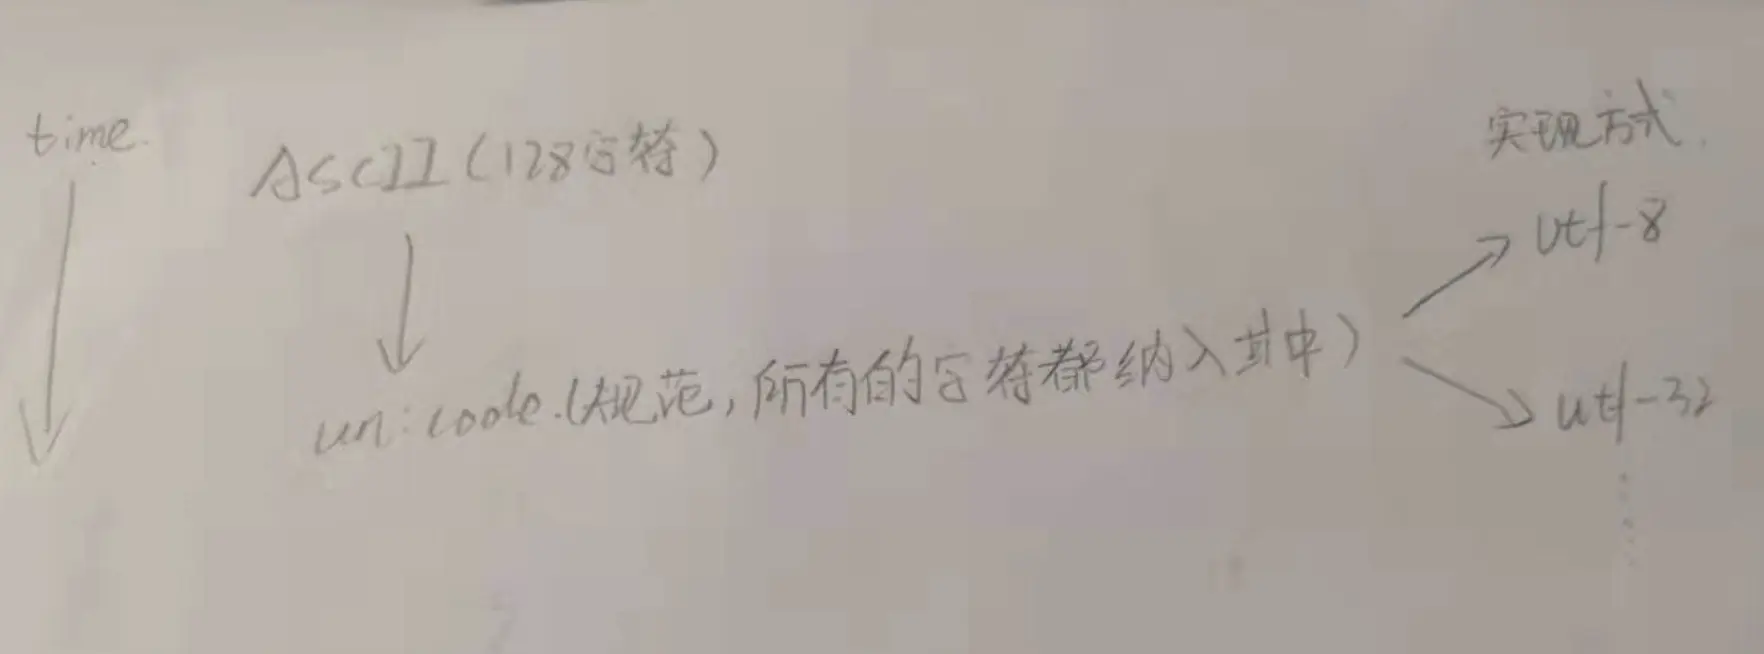 time.
ASCII(128字符)
实现方式.
utf-8
unicode.(规范,所有的字符都纳入其中)
utf-32